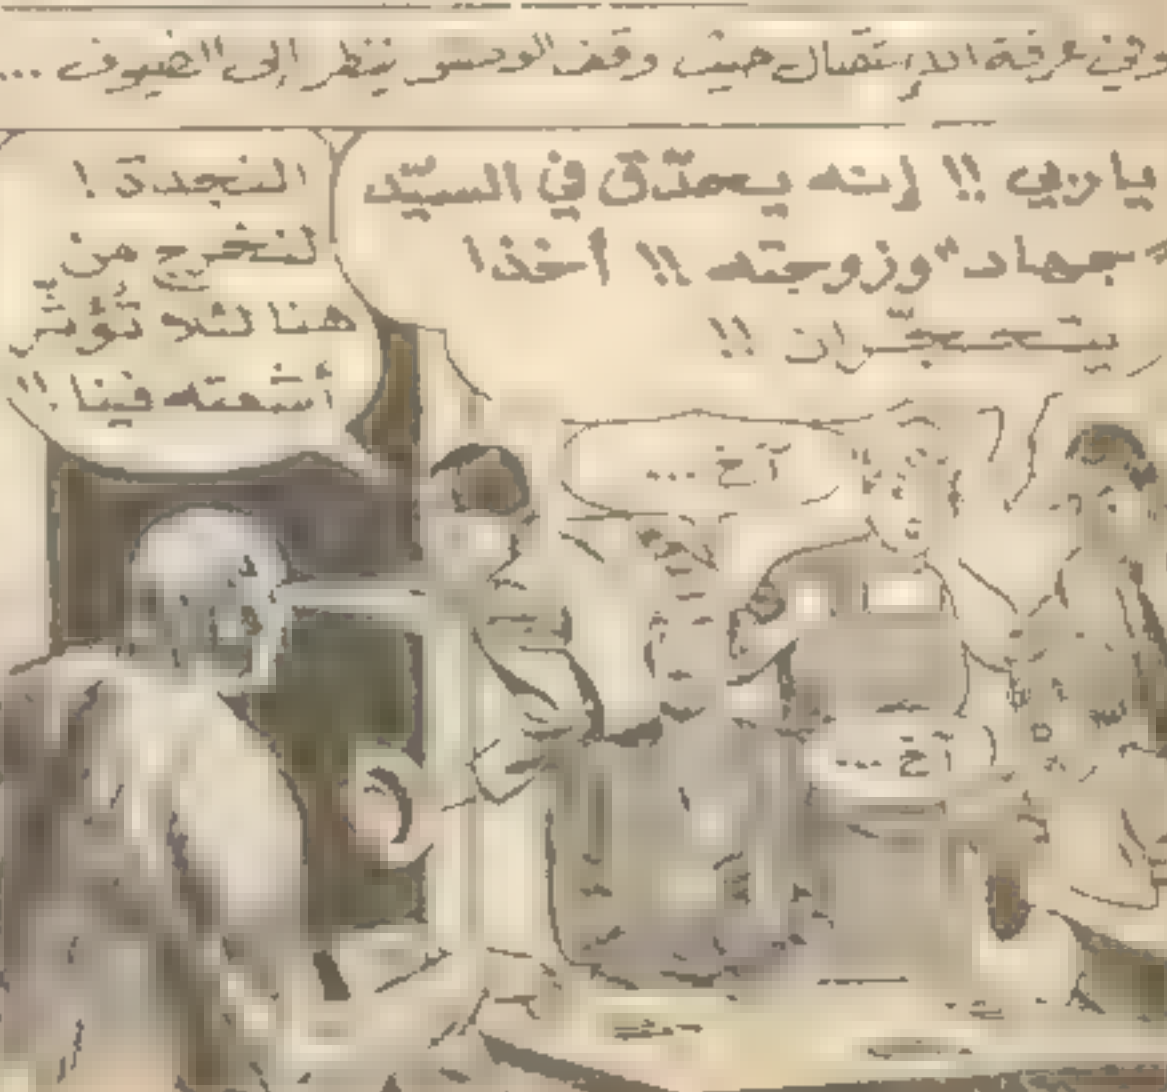 وفي غرفة الاستقبال حيث وقف الوحش ينظر إلى الضيوف ...
ياربي !! إنه يحدّق في السيّد
"جهاد" وزوجته !! أخذا
يتحجّران !!
النجدة !
لنخرج من
هنا لئلا تؤثّر
أشعته فينا !!
آخ ...
آخ ...